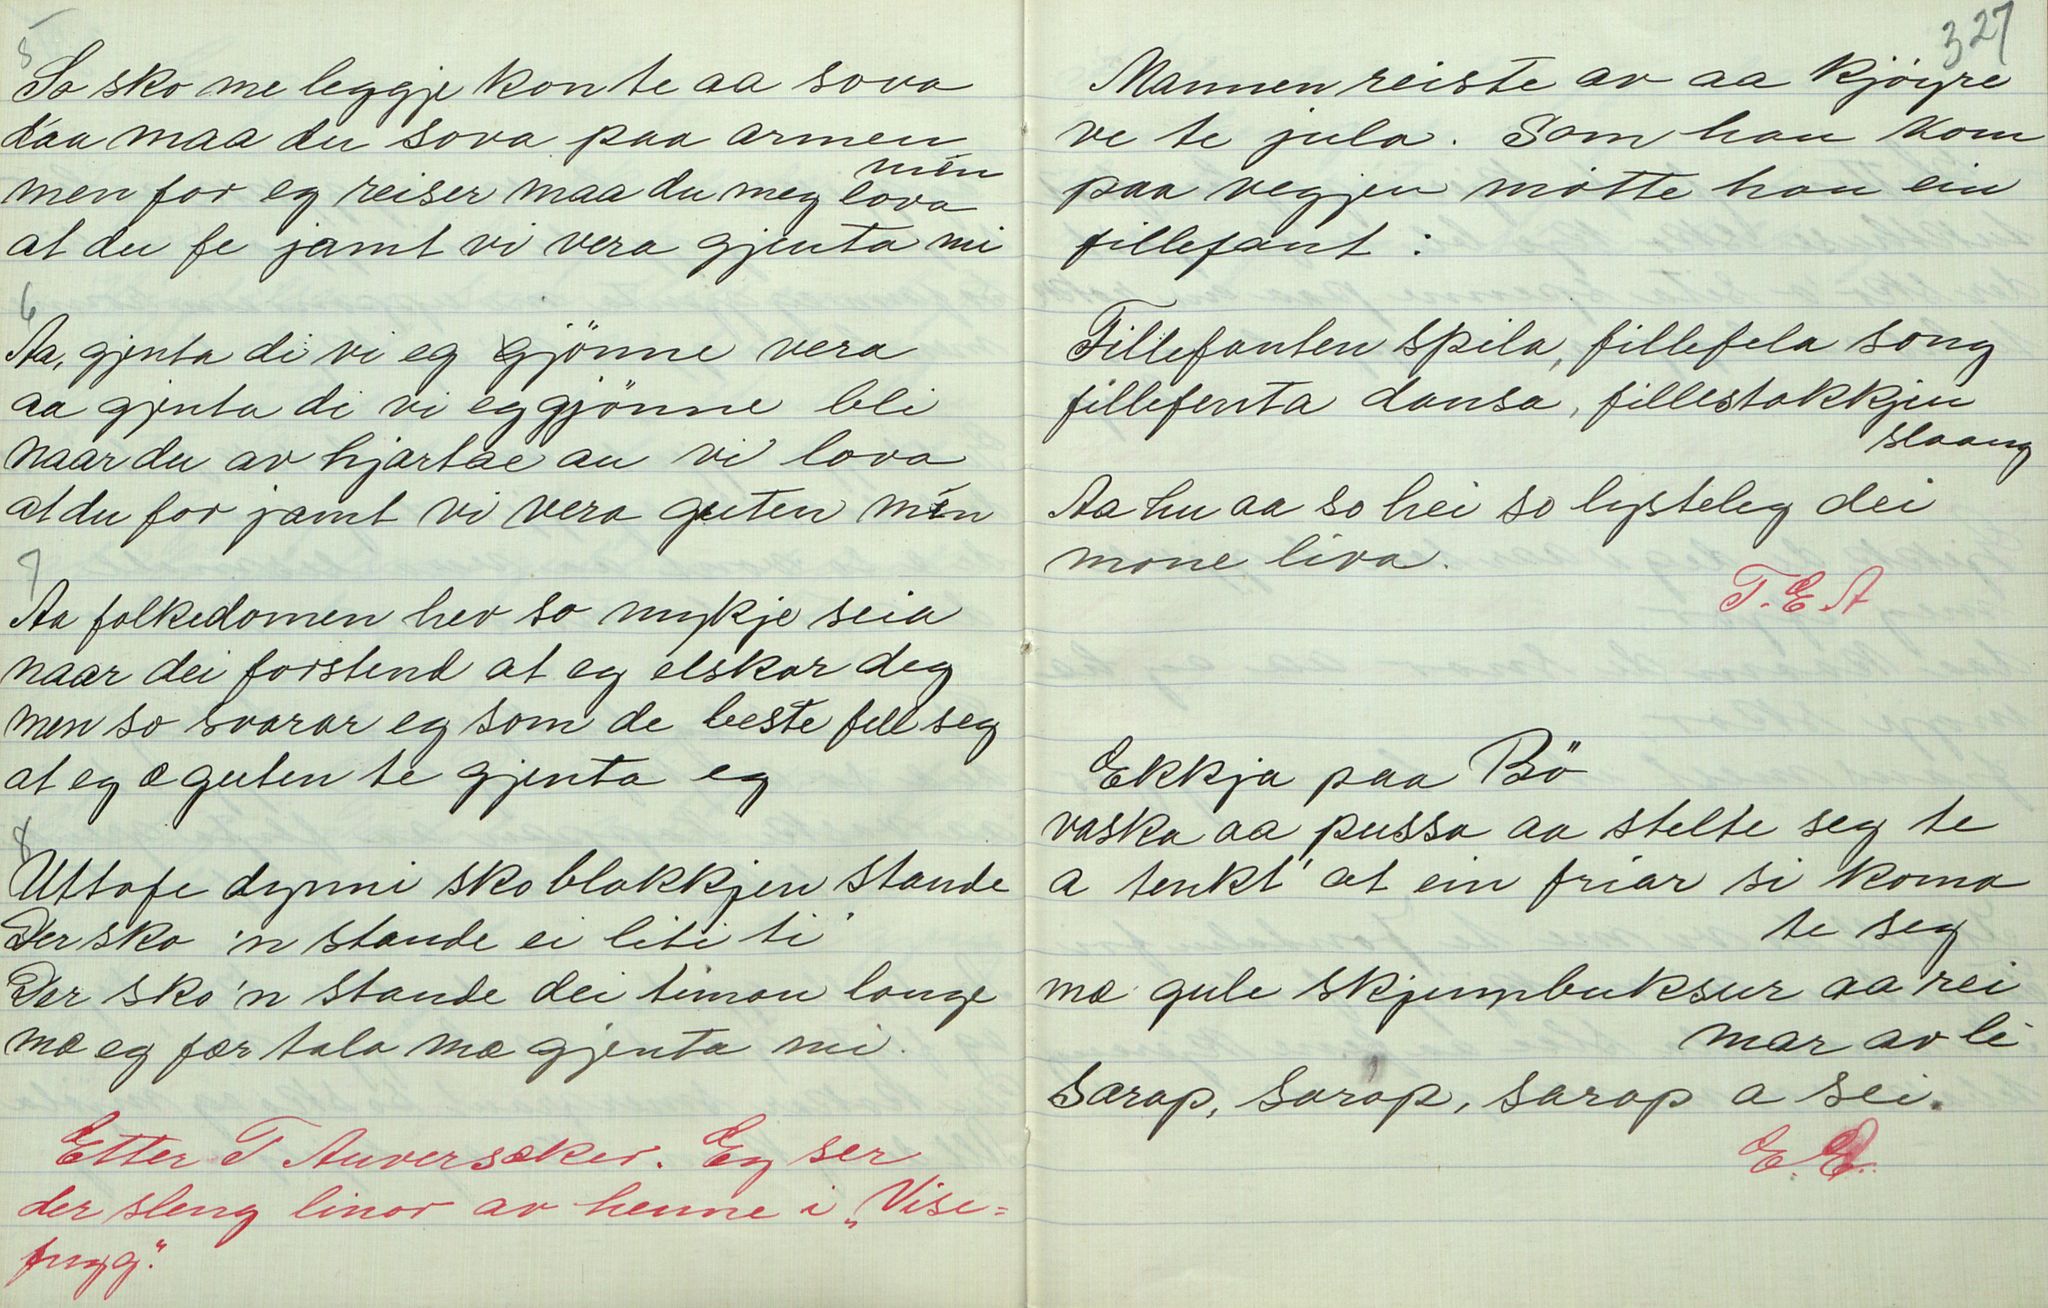 5
So sko me leggje kon te aa sova
daa maa du sova paa armen
min
men for eg reiser maa du meg lova
at du fe jamt vi vera gjenta mi
6
Aa, gjenta di vi eg gjönne vera
aa gjenta di vi eg gjönne bli
naar du av hjartae au vi lova
at du for jamt vi vera guten min
7
Aa folkedomen hev so mykje seia
naar dei forstend at eg elskar deg
men so svarar eg som de beste fell seg
at eg æ guten te gjenta eg
8
Uttafe dynni sko blakkjen stande
Der sko 'n stande ei liti ti
Der sko 'n stande dei timan lange
mæ eg fær tala mæ gjenta mi.
Etter T Auversæker. Eg ser
der sleng linor av henne i „Vise-
fugg".
327
Mannen reiste av aa kjöyre
ve te jula. Som han kom
paa vegjen mötte han ein
fillefant:
Fillefanten spila, fillefela song
fillefenta dansa, fillestakkjen
slaang
Aa hu aa so hei so lysteleg dei
mone liva.
T. E A
Ekkja paa Bö
vaska aa pussa aa stelte seg te
a tenkt' at ein friar si koma
te seg
mæ gule skjinnbuksur aa rei
mar av le
sarap, sarap, sarap a sei.
E. E.